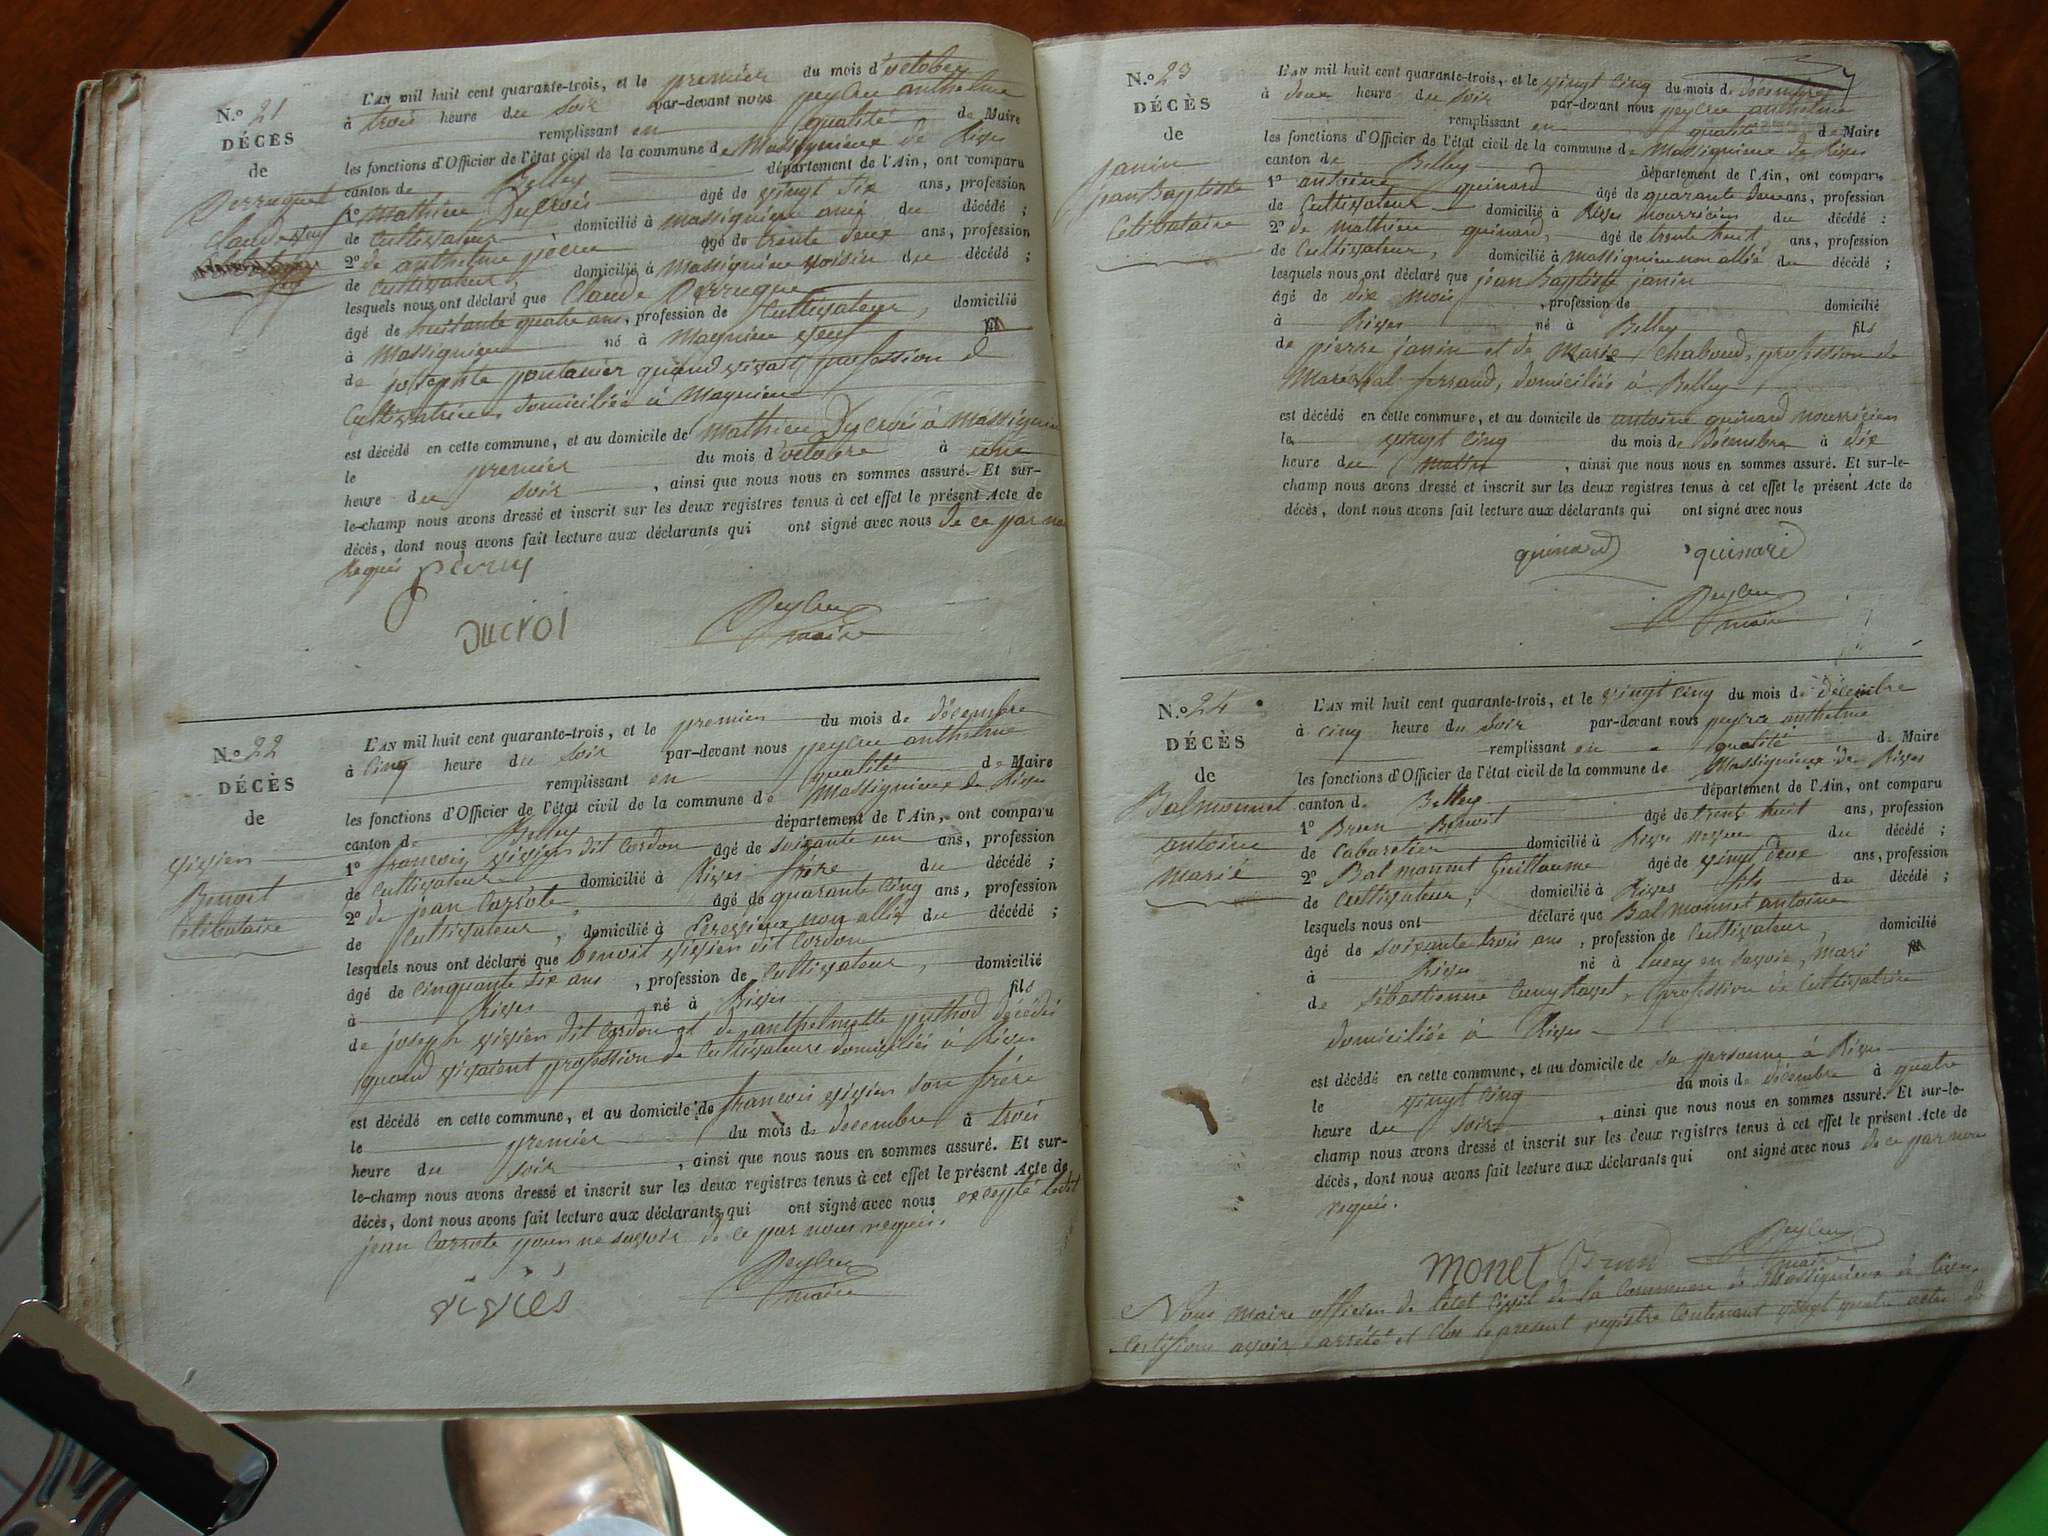 N.º 21
DÉCÈS
de
Perruquet
Claude veuf
L'AN mil huit cent quarante-trois, et le premier du mois d'octobre
à trois heure du soir par-devant nous peysson anthelme
remplissant en qualité de Maire
les fonctions d'Officier de l'état civil de la commune de Massignieux de Rives
canton de Belley département de l'Ain, ont comparu
1º Mathieu Ducrois âgé de vingt six ans, profession
de Cultivateur, domicilié à Massignieu ami du décédé ;
2º de anthelme âgé de trente deux ans, profession
de Cultivateur, domicilié à Massignieu voisin du décédé ;
lesquels nous ont déclaré que Claude Perruque
âgé de huitante quatre ans, profession de Cultivateur, domicilié
à Massignieu né à Magnieu veuf
de josephte pontanier quand vivait profession de
Cultivatrice, domiciliée à Magnieu
est décédé en cette commune, et au domicile de Mathieu Ducrois à Massignieu
le premier du mois d'octobre à une
heure du soir, ainsi que nous nous en sommes assuré. Et sur-
le-champ nous avons dressé et inscrit sur les deux registres tenus à cet effet le présent Acte de
décès, dont nous avons fait lecture aux déclarants qui ont signé avec nous de ce par nous
requis
Ducroi
maire
N.º 22
DÉCÈS
de
vivien
Benoit
Célibataire
L'AN mil huit cent quarante-trois, et le premier du mois de décembre
à cinq heure du soir par-devant nous anthelme
remplissant en qualité de Maire
les fonctions d'Officier de l'état civil de la commune de Massignieux de Rives
canton de Belley département de l'Ain, ont comparu
1º francois vivien dit Cordon âgé de soixante un ans, profession
de Cultivateur domicilié à Rives frère du décédé ;
2º de jean Carrote âgé de quarante cinq ans, profession
de Cultivateur, domicilié à non allié du décédé ;
lesquels nous ont déclaré que benoit vivien dit Cordon
âgé de cinquante six ans, profession de Cultivateur, domicilié
à Rives né à Rives fils
de joseph vivien dit Cordon et de anthelmette puthod décédés
quand vivaient profession de Cultivateurs domiciliés à Rives
est décédé en cette commune, et au domicile de francois vivien son frère
le premier du mois de décembre à trois
heure du soir, ainsi que nous nous en sommes assuré. Et sur-
le-champ nous avons dressé et inscrit sur les deux registres tenus à cet effet le présent Acte de
décès, dont nous avons fait lecture aux déclarants qui ont signé avec nous excepté ledit
jean Carrote pour ne savoir de ce par nous requis.
maire
N.º 23
DÉCÈS
de
janin
jean Baptiste
Célibataire
7
L'AN mil huit cent quarante-trois, et le vingt cinq du mois de décembre
à deux heure du soir par-devant nous anthelme
remplissant en qualité de Maire
les fonctions d'Officier de l'état civil de la commune de Massignieux de Rives
canton de Belley département de l'Ain, ont comparu
1º antoine quinard âgé de quarante deux ans, profession
de Cultivateur domicilié à Rives nourricier du décédé ;
2º de mathieu quinard, âgé de trente huit ans, profession
de Cultivateur, domicilié à Massignieu non allié du décédé ;
lesquels nous ont déclaré que jean Baptiste janin
âgé de dix mois, profession de domicilié
à Rives né à Belley fils
de pierre janin et de Marie Chaboud, profession de
Maréchal ferrand, domiciliés à Belley
est décédé en cette commune, et au domicile de antoine quinard nourricier
le vingt cinq du mois de décembre à dix
heure du matin, ainsi que nous nous en sommes assuré. Et sur-le-
champ nous avons dressé et inscrit sur les deux registres tenus à cet effet le présent Acte de
décès, dont nous avons fait lecture aux déclarants qui ont signé avec nous
quinard quinard
maire
N.º 24
DÉCÈS
de
Balmonnet
antoine
marié
L'AN mil huit cent quarante-trois, et le vingt cinq du mois de décembre
à cinq heure du soir par-devant nous anthelme
remplissant en qualité de Maire
les fonctions d'Officier de l'état civil de la commune de Massignieux de Rives
canton de Belley département de l'Ain, ont comparu
1º Brun Benoit âgé de trente huit ans, profession
de Cabaretier domicilié à Rives neveu du décédé ;
2º Balmonnet Guillaume âgé de vingt deux ans, profession
de Cultivateur, domicilié à Rives fils du décédé ;
lesquels nous ont déclaré que Balmonnet antoine
âgé de soixante trois ans, profession de Cultivateur, domicilié
à Rives né à lucey en savoie, mari
de sébastienne profession de Cultivatrice
domiciliée à Rives
est décédé en cette commune, et au domicile de sa personne à Rives
le vingt cinq du mois de décembre à quatre
heure du soir, ainsi que nous nous en sommes assuré. Et sur-le-
champ nous avons dressé et inscrit sur les deux registres tenus à cet effet le présent Acte de
décès, dont nous avons fait lecture aux déclarants qui ont signé avec nous de ce par nous
requis.
monet Brun maire
Nous maire officier de l'etat civil de la commune de Massignieux de Rives
Certifions avoir arrêté et Clos le present registre Contenant vingt quatre actes de